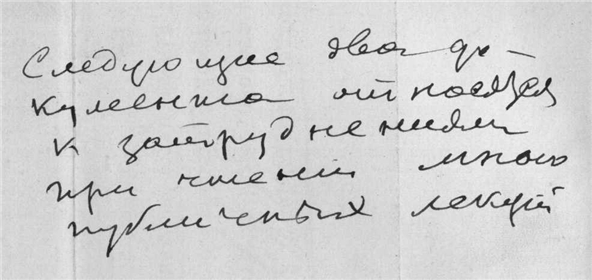 Следующие два до-
кумента относятся
к затруднениям
при чтении мною
публичных лекций